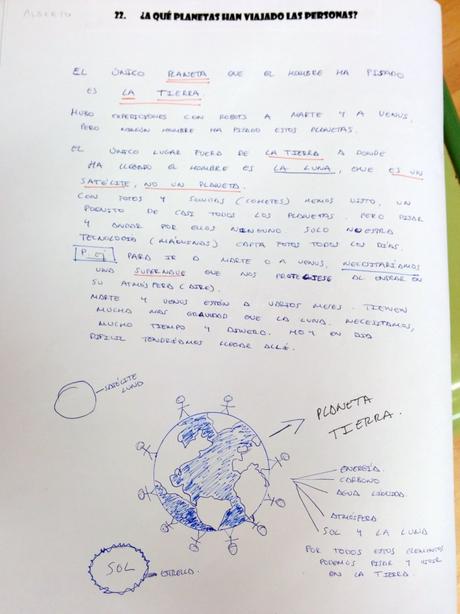 ALBERTO
22. ¿A QUÉ PLANETAS HAN VIAJADO LAS PERSONAS?
EL ÚNICO PLANETA QUE EL HOMBRE HA PISADO
ES LA TIERRA.
HUBO EXPEDICIONES CON ROBOTS A MARTE Y A VENUS,
PERO NINGÚN HOMBRE HA PISADO ESTOS PLANETAS.
EL ÚNICO LUGAR FUERA DE LA TIERRA A DONDE
HA LLEGADO EL HOMBRE ES LA LUNA, QUE ES UN
SATÉLITE, NO UN PLANETA.
CON FOTOS Y SONDAS (COHETES) HEMOS VISTO, UN
POQUITO DE CASI TODOS LOS PLANETAS. PERO PISAR
Y ANDAR POR ELLOS NINGUNO SOLO NUESTRA
TECNOLOGÍA (MÁQUINAS) CAPTA FOTOS TODOS LOS DÍAS.
P. ej PARA IR A MARTE O A VENUS, NECESITARÍAMOS
UNA SUPERNAVE QUE NOS PROTEGIESE AL ENTRAR EN
SU ATMÓSFERA (AIRE).
MARTE Y VENUS ESTÁN A VARIOS MESES. TIENEN
MUCHA MÁS GRAVEDAD QUE LA LUNA. NECESITAMOS,
MUCHO TIEMPO Y DINERO. HOY EN DIA
DIFICIL TENDRÍAMOS LLEGAR ALLÍ.
SATÉLITE
LUNA
PLANETA
TIERRA.
ENERGÍA
CARBONO
AGUA LÍQUIDA
ATMÓSFERA
SOL Y LA LUNA
POR TODOS ESTOS ELEMENTOS
PODEMOS PISAR Y VIVIR
EN LA TIERRA.
SOL
ESTRELLA